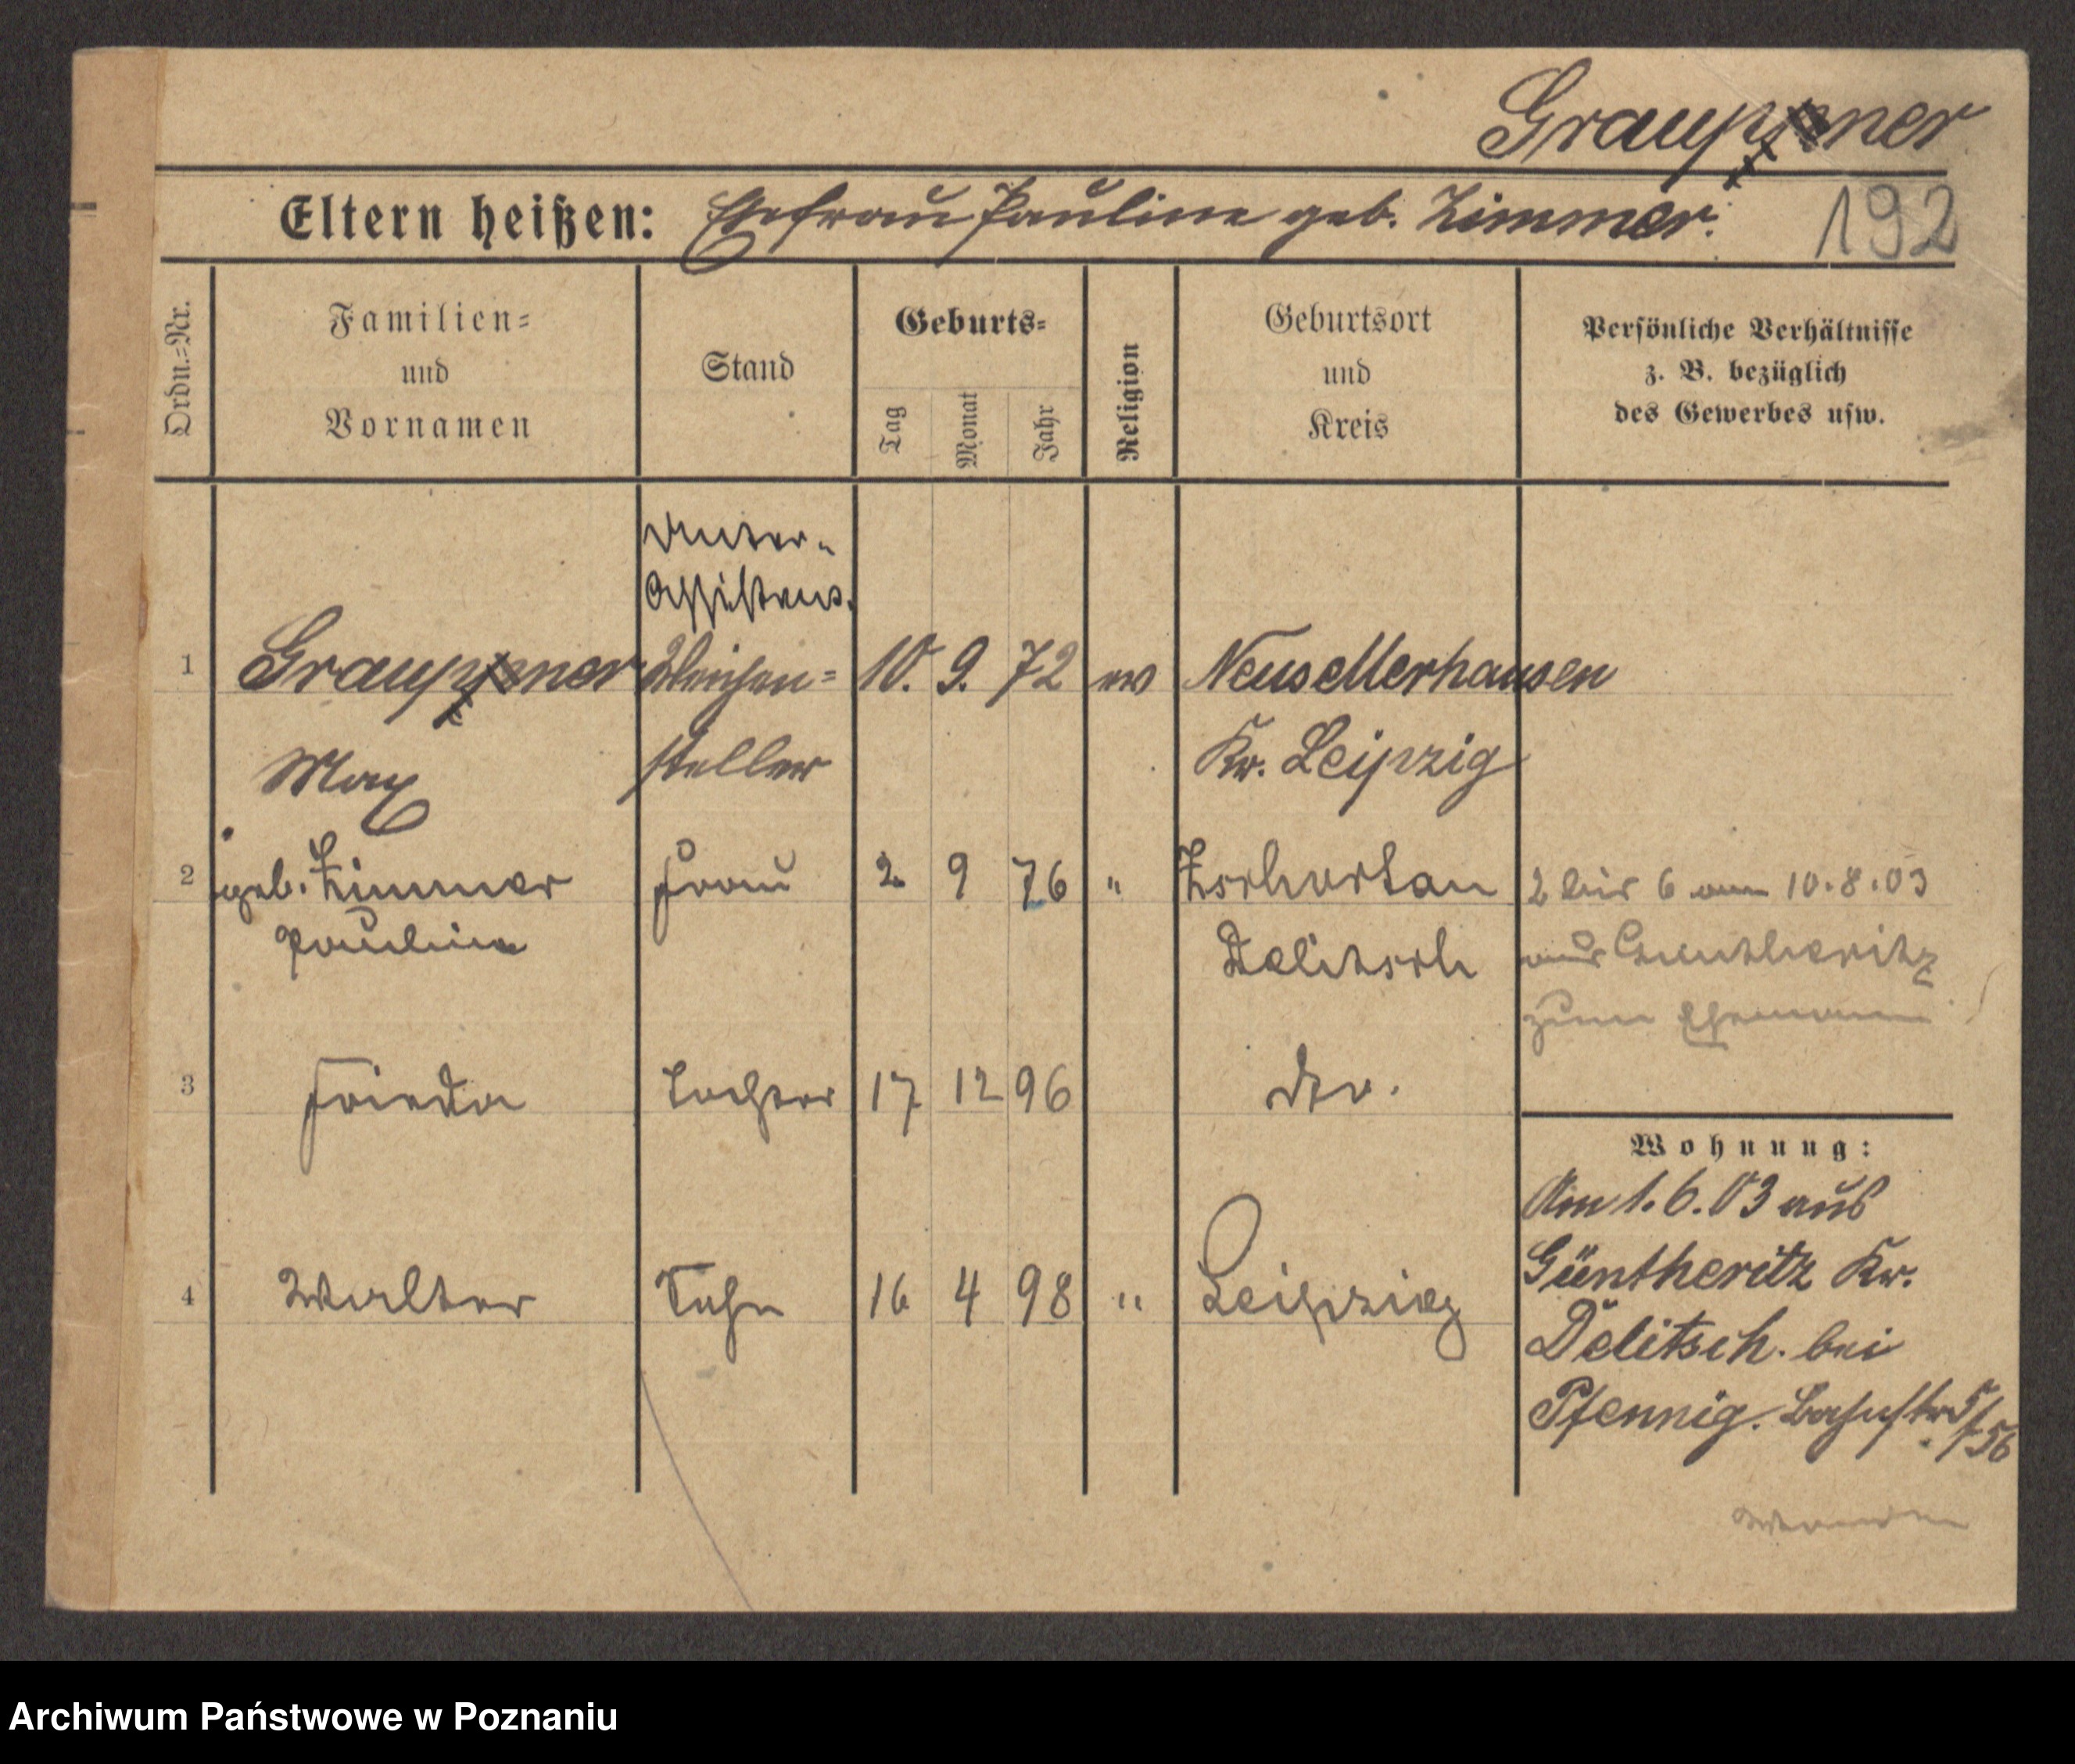 Graupner
Eltern heißen: Ehefrau Pauline geb. Zimmer.
192
Ordn.=Nr.
Familien=
und
Vornamen
Stand
Geburts=
Tag
Monat
Jahr
Religion
Geburtsort
und
Kreis
Persönliche Verhältnisse
z. B. bezüglich
des Gewerbes usw.
Unter-
Assistent.
1 Graupner Weichen= 10. 9. 72 ev Neusellerhausen
Max steller Kr. Leipzig
2 geb. Zimmer Frau 2 9 76 " Zschortau 2 bis 6 am 10.8.03
Pauline Delitsch aus Güntheritz
zum Ehemann
3 Frieda Tochter 17 12 96 do.
Wohnung:
Am 1.6.03 aus
4 Walter Sohn 16 4 98 " Leipzig Güntheritz Kr.
Delitsch. bei
Pfennig. Bahnstr 5/56
Archiwum Państwowe w Poznaniu